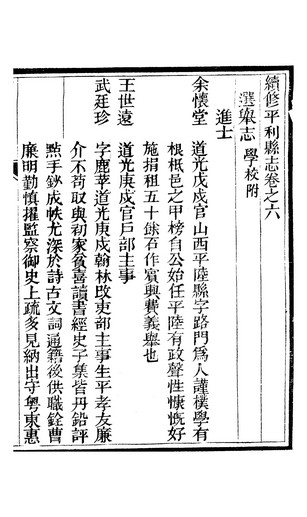 續修平利縣志卷之六
選舉志 學校附
進士
余懷堂 道光戊戌官山西平陸縣字路門為人謹樸學有
根柢邑之甲榜自公始任平陸有政聲性慷慨好
施捐租五十餘石作賓興費義舉也
王世遠 道光庚戌官戶部主事
武廷珍 字鹿苹道光庚戌翰林改吏部主事生平孝友廉
介不苟取與初家貧喜讀書經史子集皆丹鉛評
點手鈔成帙尤深於詩古文詞通籍後供職銓曹
廉明勤慎擢監察御史上疏多見納出守粵東惠